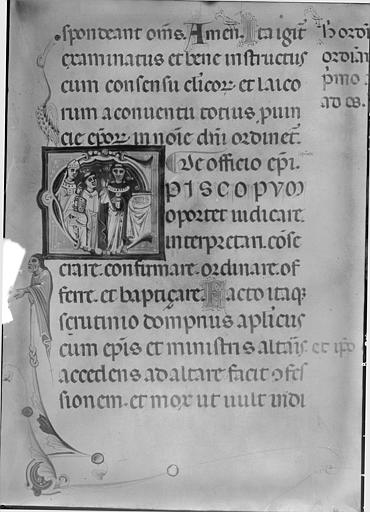 spondeant om̄s. Amen. Ita igit̄
examinatus et bene instructus
cum consensu cl̄icoꝝ. et laico
rum a conuentu totius. p̱uin
cie ep̄oꝝ. in noīe dn̄i ordinet̄.
De officio ep̄i.
EPISCOPVM
oportet iudicare.
interpretari. cōse
crare. confirmare. ordinare. of
ferre. et baptiçare. Facto itaq̨
scrutinio dompnus ap̄licus
cum ep̄is et ministris altaris et ip̄o
accedens ad altare facit ꝯfes
sionem. et mox ut uult indi
ordin
ad es.